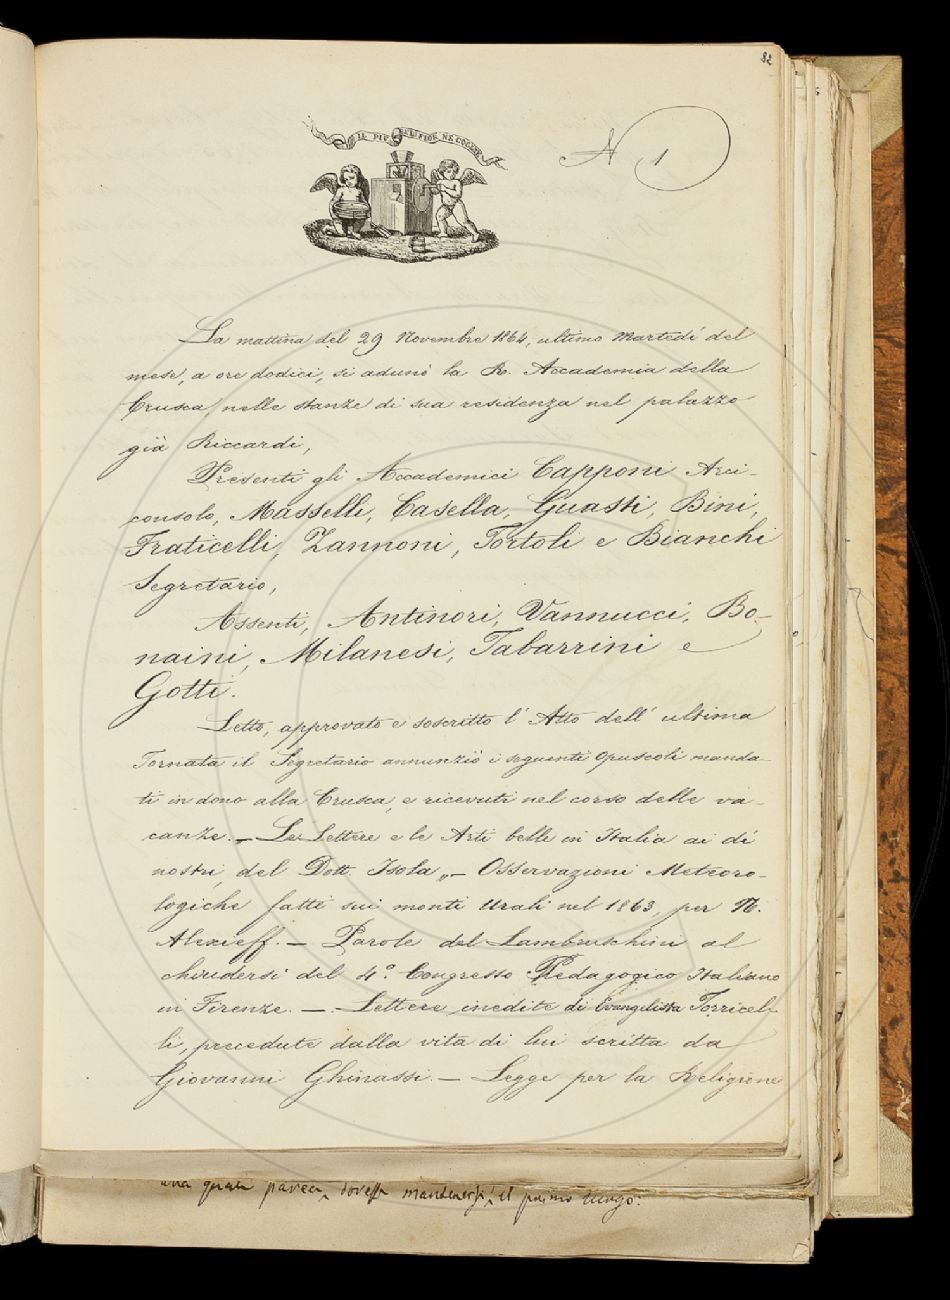 82
IL PIÙ BEL FIOR NE COGLIE
N 1
La mattina del 29 Novembre 1864, ultimo Martedí del
mese, a ore dodici, si adunò la R. Accademia della
Crusca, nelle stanze di sua residenza nel palazzo
già Riccardi,
Presenti gli Accademici Capponi Arci-
consolo, Masselli, Casella, Guasti, Bini,
Fraticelli, Zannoni, Tortoli e Bianchi
Segretario,
Assenti, Antinori, Vannucci, Bo-
naini, Milanesi, Tabarrini e
Gotti.
Letto, approvato e soscritto l' Atto dell' ultima
Tornata il Segretario annunziò i seguenti Opuscoli manda-
ti in dono alla Crusca, e ricevuti nel corso delle va-
canze. — Le Lettere e le Arti belle in Italia ai dí
nostri, del Dott. Isola „— Osservazioni Meteoro-
logiche fatte sui monti Urali nel 1863, per N.
Alexieff. — Parole del Lambruschini al
chiudersi del 4.° Congresso Pedagogico Italiano
in Firenze. — Lettere inedite di Evangelista Torricel-
li, precedute dalla vita di lui scritta da
Giovanni Ghinassi. — Legge per la Religione
una parea, dovesse mantenersi il primo luogo.